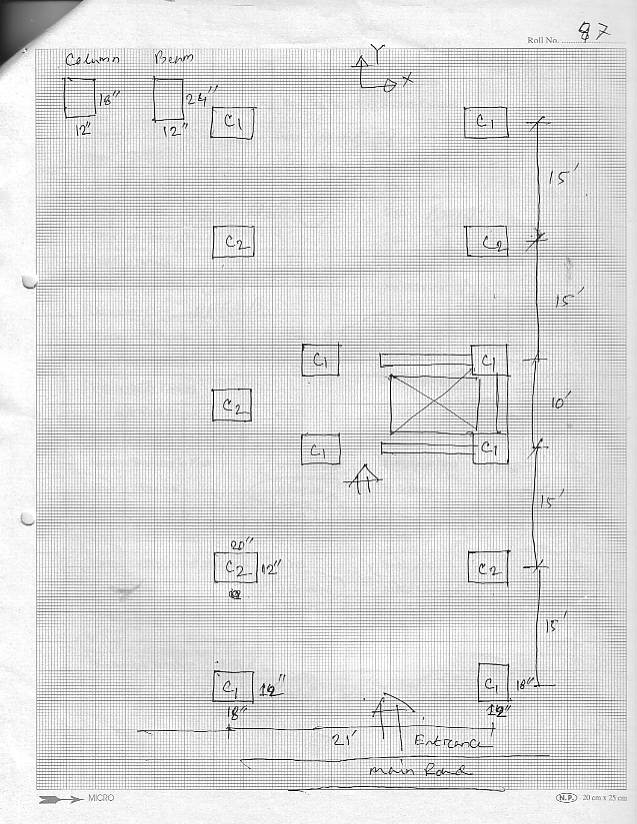 Roll No. ........ 87
Column Beam Y
X
18" 24"
12" 12" C1 C1
15'
C2 C2
15'
C1 C1
C2 10'
C1 C1
15'
20"
C2 12" C2
15'
C1 12" C1 18"
18" 12"
21' Entrance
main Road
MICRO N.P. 20 cm x 25 cm